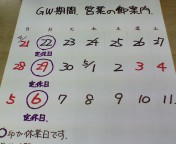 GW期間 営業の御案内
月 火 水 木 金 土 日
4/21 22 23 24 25 26 27
定休日
28 29 30 5/1 2 3 4
定休日
5 6 7 8 9 10 11
定休日
○印が休業日です.